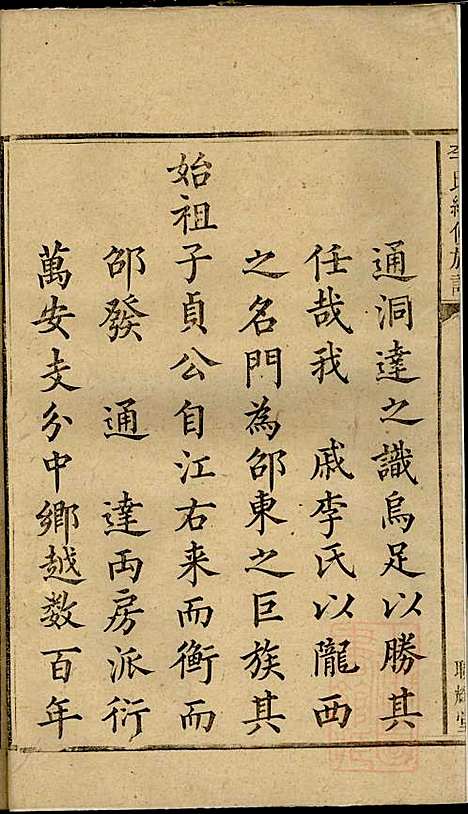 李氏續修族譜
通洞達之識烏足以勝其
任哉我 戚李氏以隴西
之名門為邵東之巨族其
始祖子貞公自江右来而衡而
邵發 通 達両房派衍
萬安支分中鄉越数百年